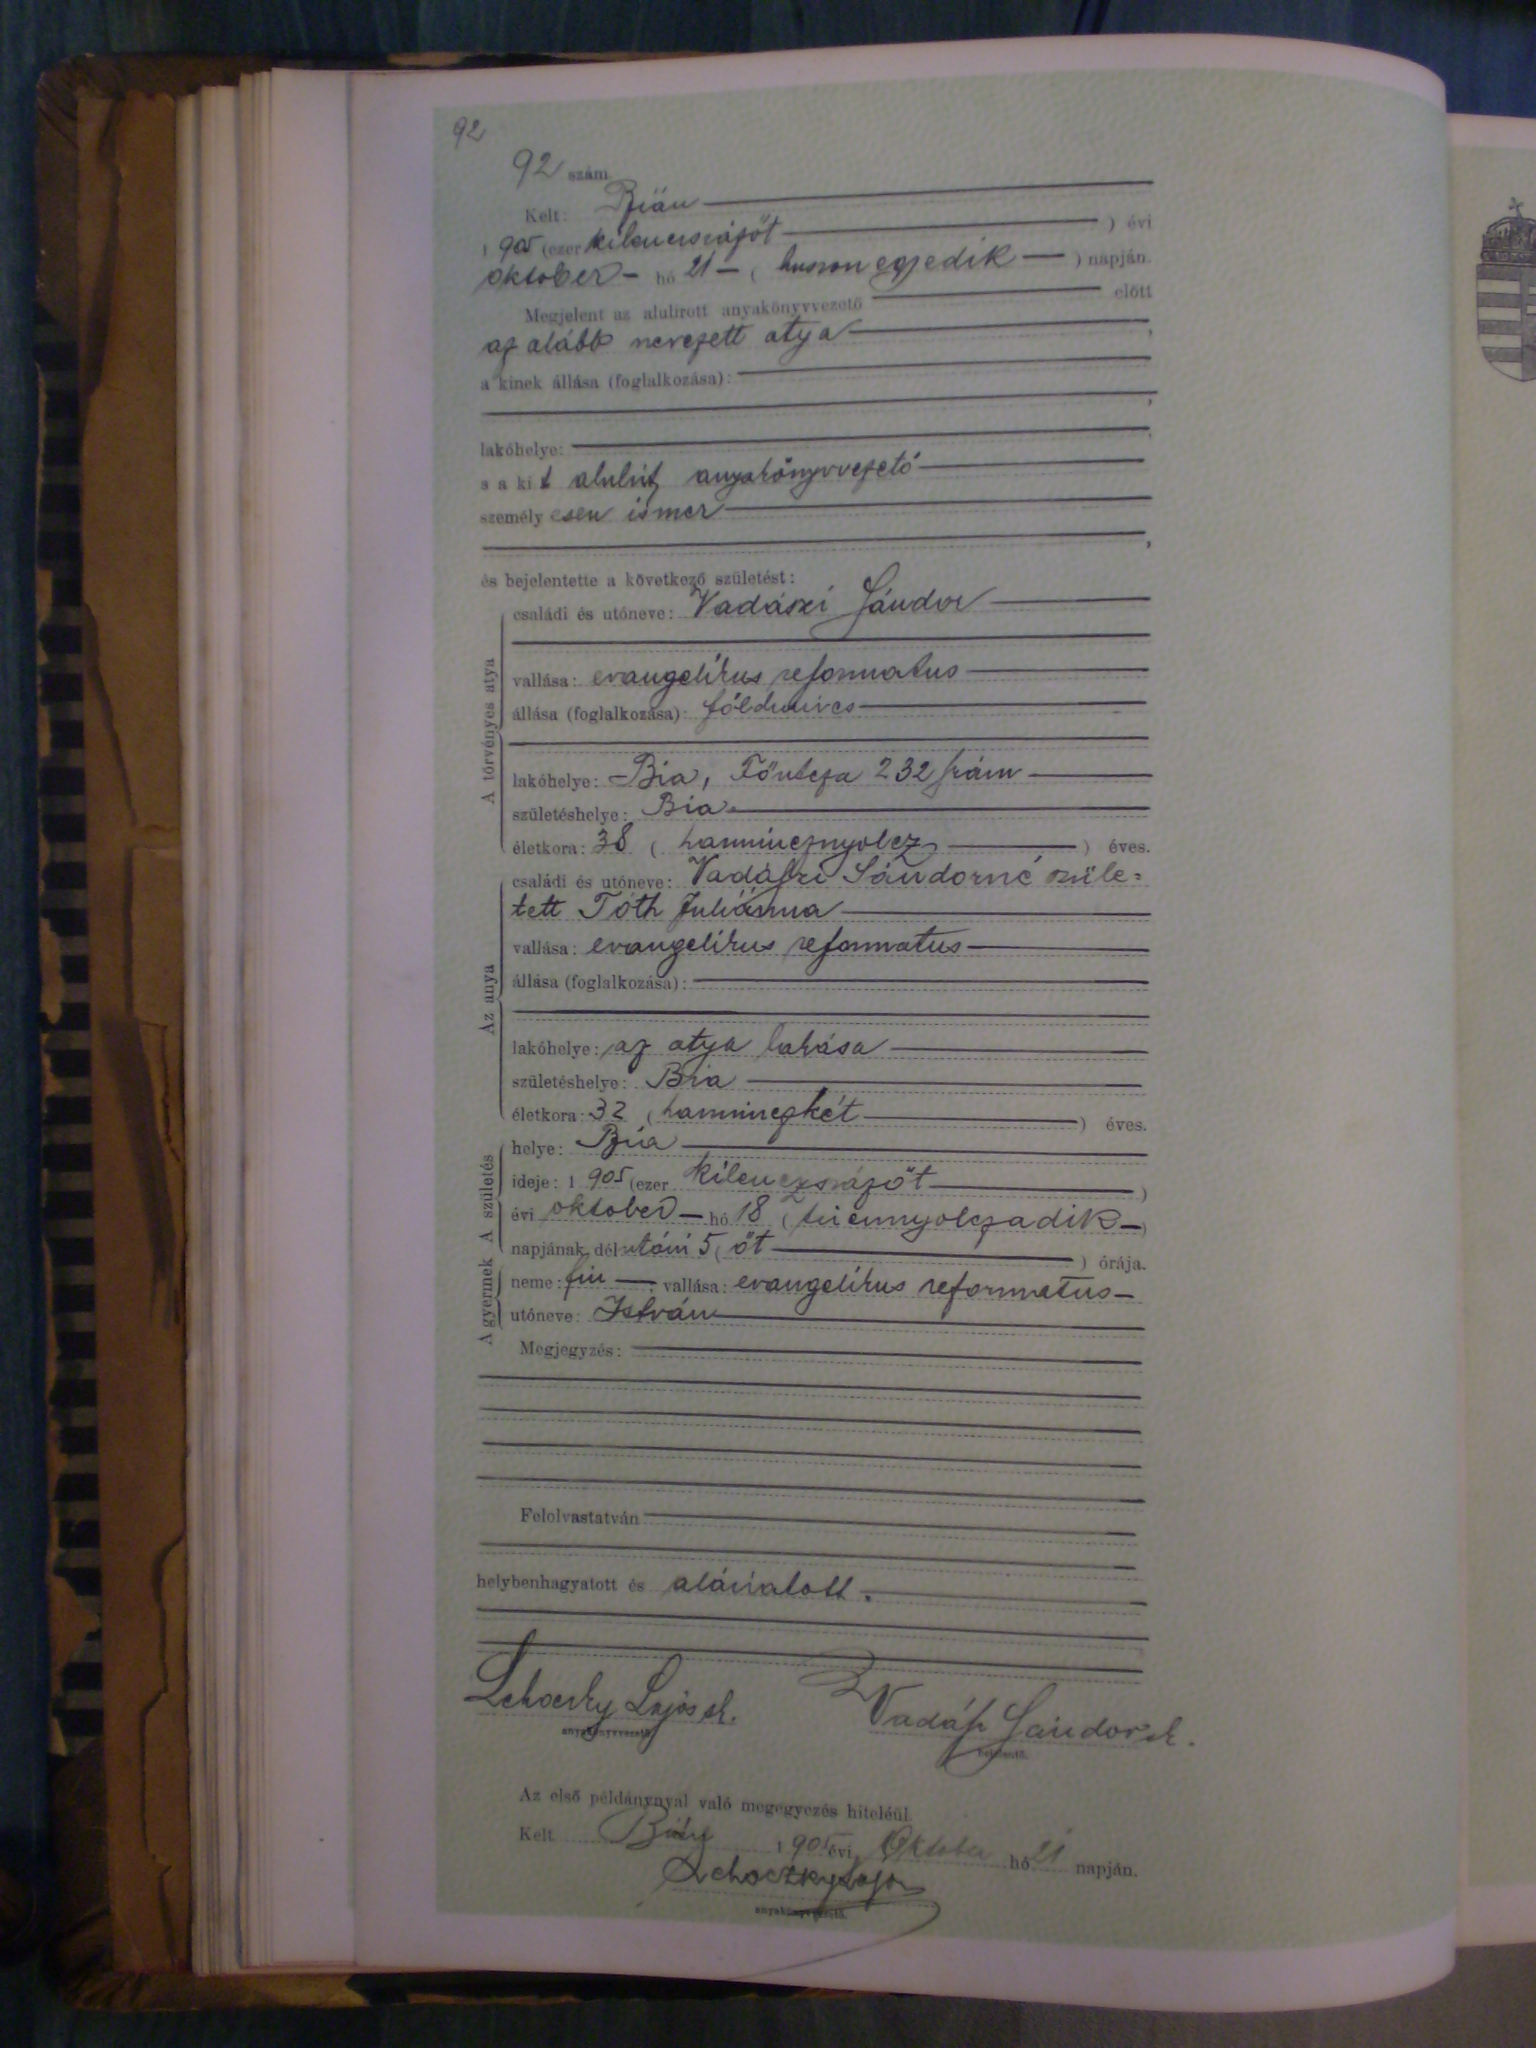 92
92 szám
Kelt: Bián
1905 (ezer kilenczszázöt) évi
október hó 21 (huszonegyedik) napján.
Megjelent az alulirott anyakönyvvezető előtt
az alább nevezett atya,
a kinek állása (foglalkozása):
lakóhelye:
s a kit alulírt anyakönyvvezető
személyesen ismer,
és bejelentette a következő születést:
A törvényes atya
családi és utóneve: Vadászi Sándor
vallása: evangelikus reformatus
állása (foglalkozása): földmives
lakóhelye: Bia, Főutcza 232 szám
születéshelye: Bia
életkora: 38 (harmincznyolcz) éves.
Az anya
családi és utóneve: Vadászi Sándorné szüle-
tett Tóth Juliánna
vallása: evangelikus reformatus
állása (foglalkozása):
lakóhelye: az atya lakása
születéshelye: Bia
életkora: 32 (harminczkét) éves.
A születés
helye: Bia
ideje: 1905 (ezer kilenczszázöt)
évi október hó 18 (tizennyolczadik)
napjának délutáni 5 (öt) órája.
A gyermek
neme: fiu; vallása: evangelikus reformatus
utóneve: István
Megjegyzés:
Felolvastatván
helybenhagyatott és aláíratott.
Lehoczky Lajos sk.
anyakönyvvezető
Vadász Sándor sk.
bejelentő.
Az első példánynyal való megegyezés hiteléül.
Kelt Bián 1905 évi Október hó 21 napján.
Lehoczky Lajos
anyakönyvvezető.